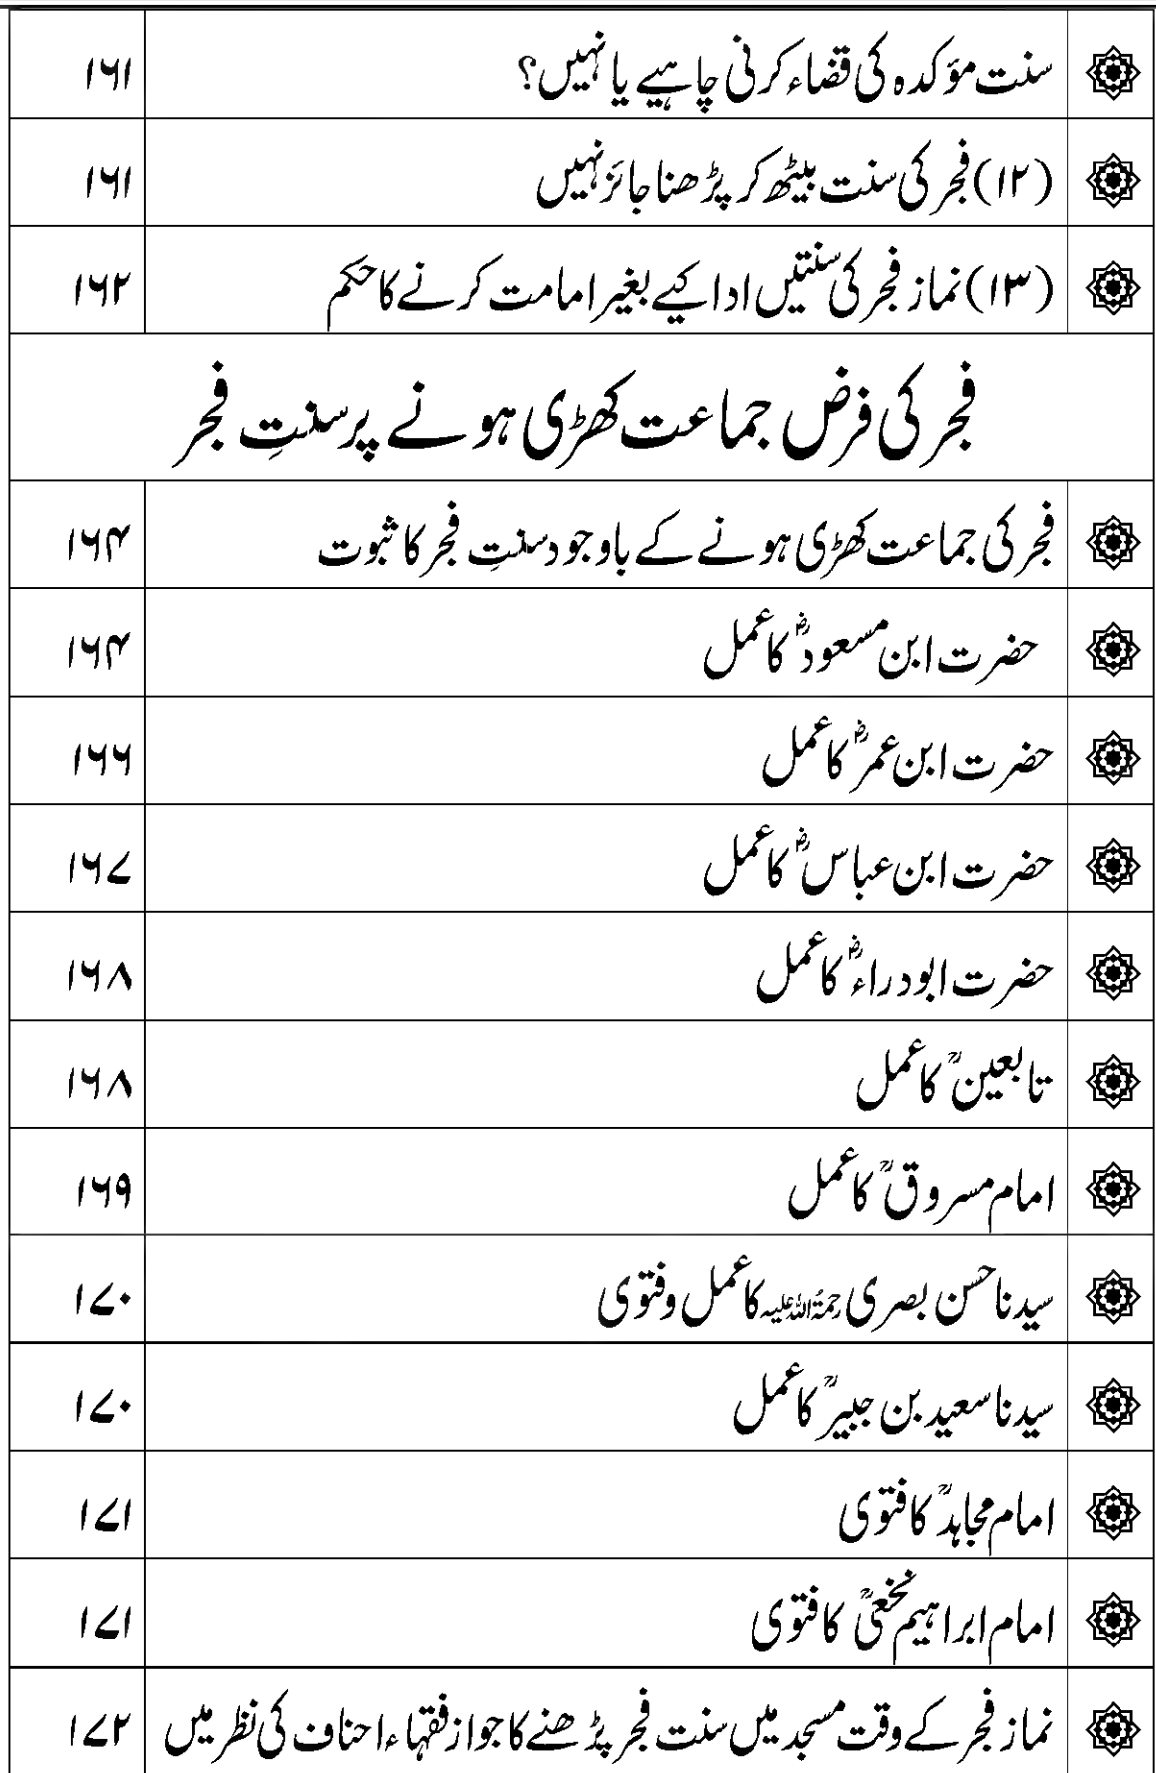 سنت مؤکدہ کی قضاء کرنی چاہیے یا نہیں؟ ۱۶۱
(۱۲) فجر کی سنت بیٹھ کر پڑھنا جائز نہیں ۱۶۱
(۱۳) نماز فجر کی سنتیں ادا کیے بغیر امامت کرنے کا حکم ۱۶۲
فجر کی فرض جماعت کھڑی ہونے پر سنتِ فجر
فجر کی جماعت کھڑی ہونے کے باوجود سنتِ فجر کا ثبوت ۱۶۴
حضرت ابن مسعودؓ کا عمل ۱۶۴
حضرت ابن عمرؓ کا عمل ۱۶۶
حضرت ابن عباسؓ کا عمل ۱۶۷
حضرت ابودراءؓ کا عمل ۱۶۸
تابعینؒ کا عمل ۱۶۸
امام مسروقؒ کا عمل ۱۶۹
سیدنا حسن بصری رحمۃ اللہ علیہ کا عمل وفتوی ۱۷۰
سیدنا سعید بن جبیرؒ کا عمل ۱۷۰
امام مجاہدؒ کا فتوی ۱۷۱
امام ابراہیم نخعیؒ کا فتوی ۱۷۱
نماز فجر کے وقت مسجد میں سنت فجر پڑھنے کا جواز فقہاء احناف کی نظر میں ۱۷۲